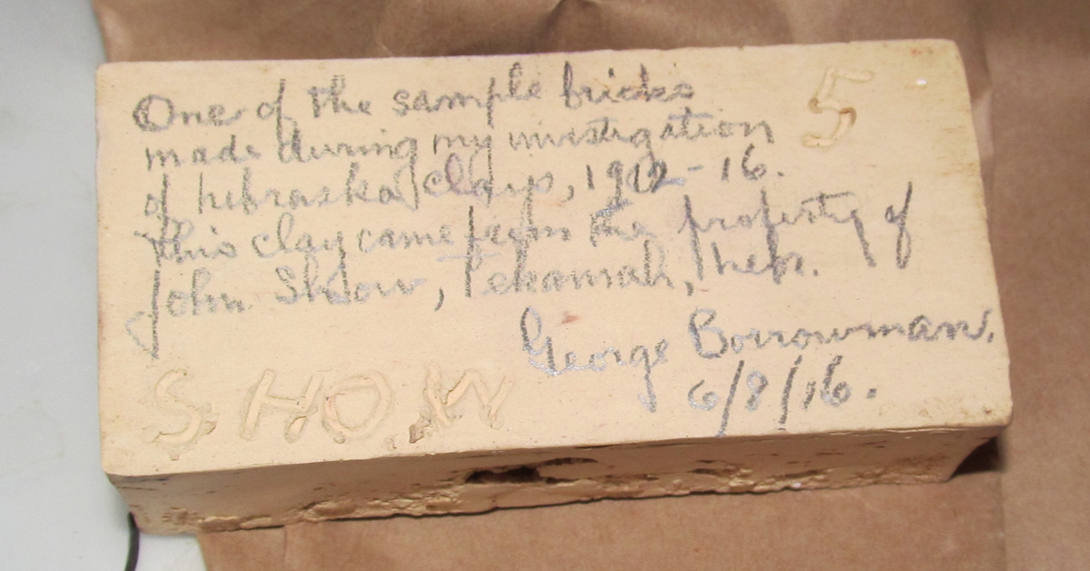 One of the sample bricks
5
made during my investigation
of nebraska clays, 1912-16.
This clay came from the property of
John Show, Tekamah, Nebr.
George Borrowman.
6/8/16.
S.HO.W